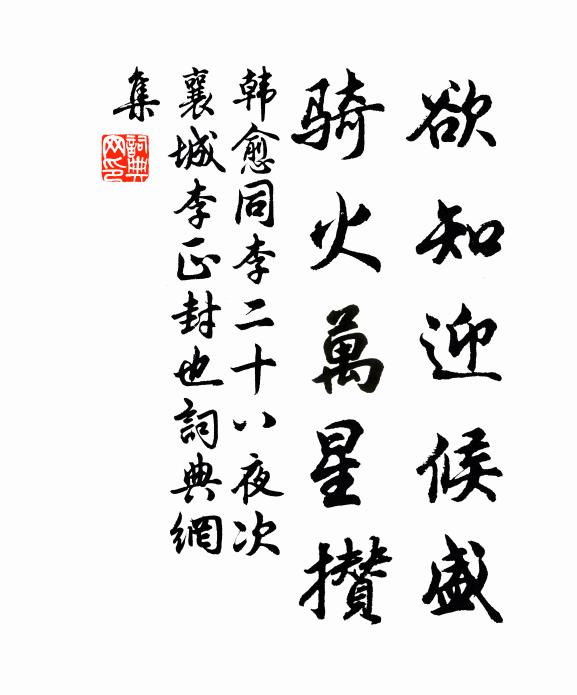 欲知迎候盛
騎火萬星攅
韓愈同李二十八夜次
襄城李正封也詞典網
集
詞典
网印